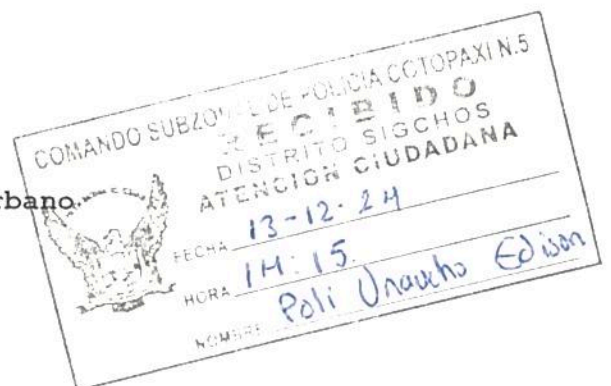 COMANDO SUBZONAL DE POLICIA COTOPAXI N.5
RECIBIDO
DISTRITO SIGCHOS
ATENCION CIUDADANA
rbano.
FECHA 13-12-24
HORA 14:15.
NOMBRE Poli Unaucho Edison